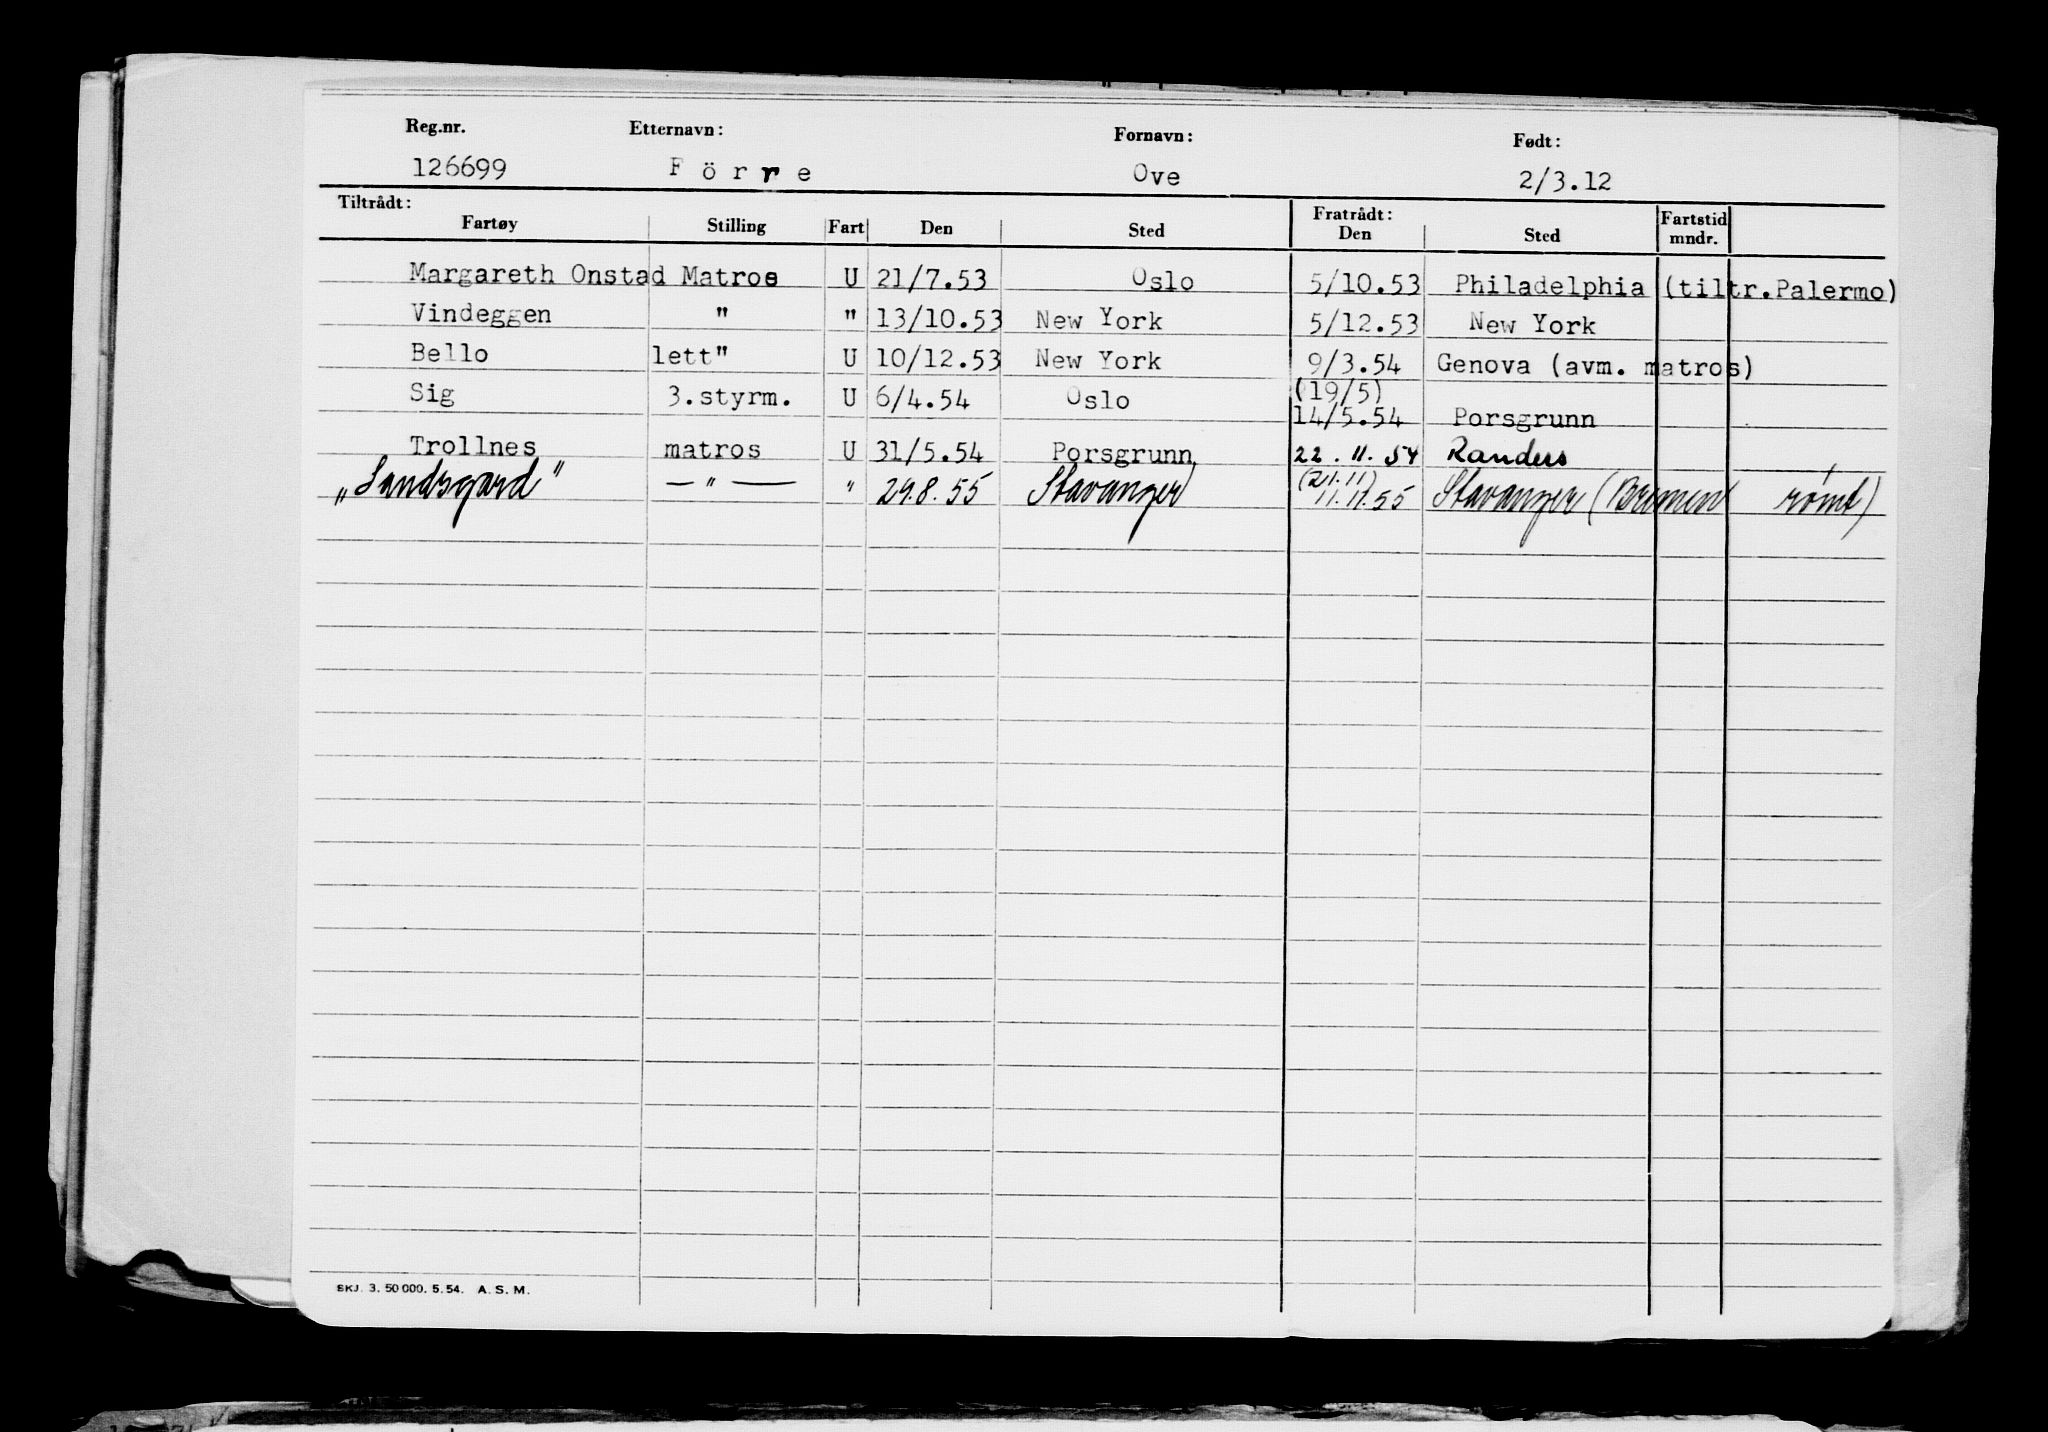 Reg.nr. Etternavn: Fornavn: Født:
126699 Förre Ove 2/3.12
Tiltrådt: Fratrådt:
Fartøy Stilling Fart Den Sted Den Sted Fartstid mndr.
Margareth Onstad Matros U 21/7.53 Oslo 5/10.53 Philadelphia (tiltr.Palermo)
Vindeggen " " 13/10.53 New York 5/12.53 New York
Bello lett" U 10/12.53 New York 9/3.54 Genova (avm. matros)
Sig 3.styrm. U 6/4.54 Oslo (19/5) 14/5.54 Porsgrunn
Trollnes matros U 31/5.54 Porsgrunn 22.11.54 Randers
„Sandsgard" —"— " 29.8.55 Stavanger (21.11) 11.11.55 Stavanger (Bremen rømt)
SKJ. 3. 50 000. 5. 54. A. S. M.